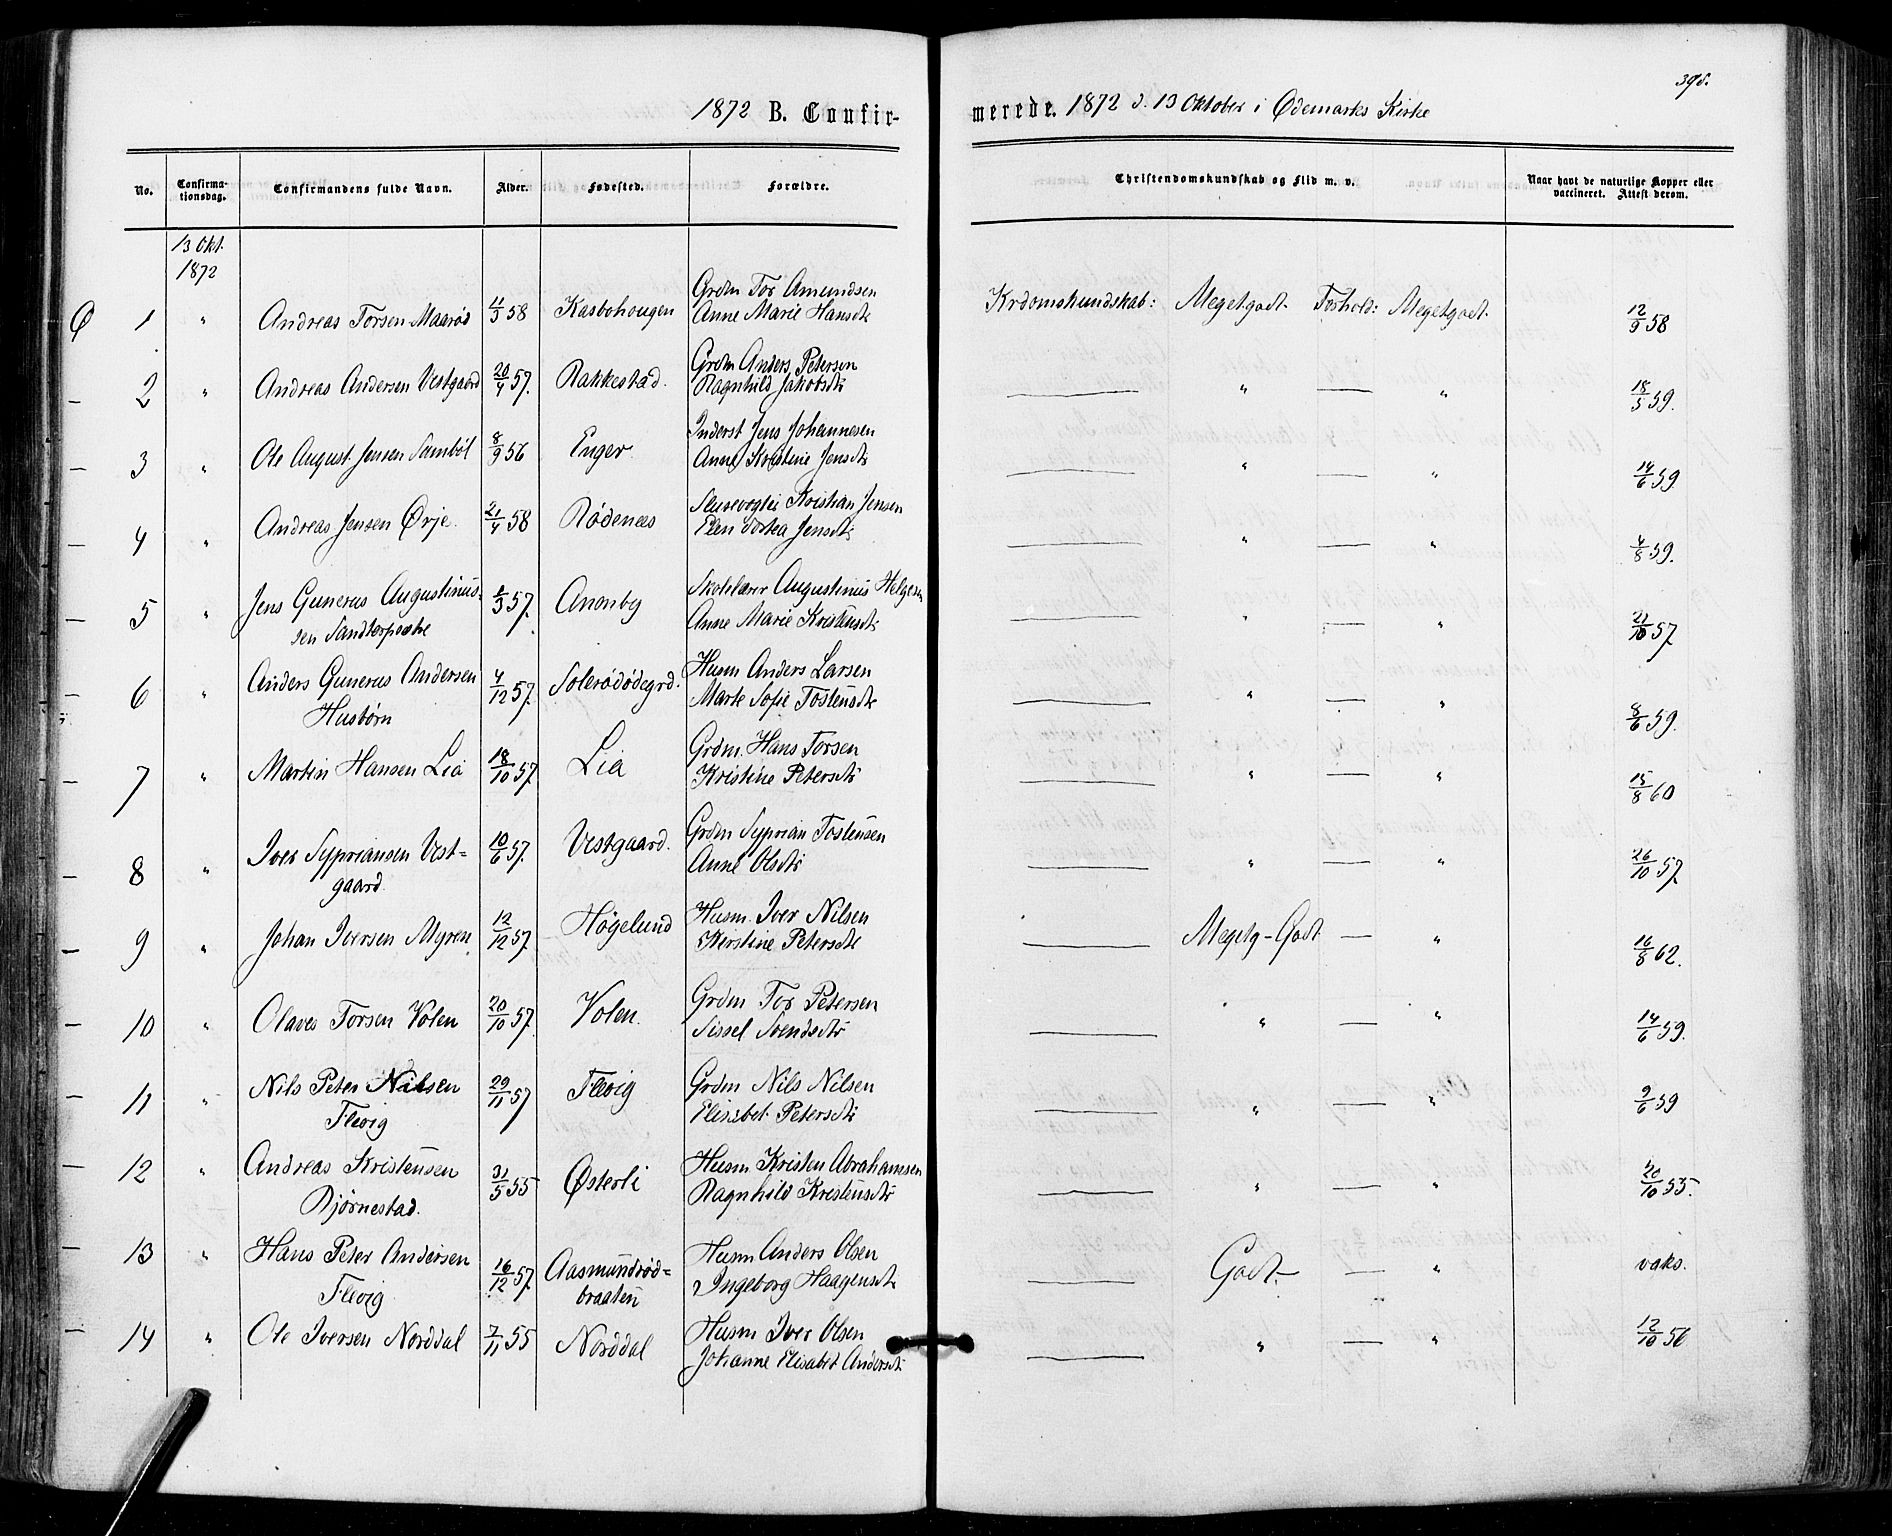 395.
1872 B. Confirmerede. 1872 d. 13 Oktober i Ødemarks Kirke
No. Confirmationsdag. Confirmandens fulde Navn. Alder. Fødested. Forældre. Christendomskundskab og Flid m. v. Naar havt de naturlige Kopper eller vaccineret. Attest derom.
13 Okt. 1872
Ø 1 " Andreas Torsen Maarød 11/3 58 Kasbohougen Grdm Tor Amundsen Anne Marie Hansdtr Krdomskundskab: Megetgodt. Forhold: Megetgodt. 12/9 58
— 2 " Andreas Andersen Vestgaard 20/4 57. Rakkestad. Grdm Anders Petersen Ragnhild Jakobsdtr — " — " 18/5 59.
— 3 " Ole August Jensen Sambøl 8/9 56 Enger Inderst Jens Johannesen Anne Kristine Jensdtr — " — " 14/6 59
— 4 " Andreas Jensen Ørje. 21/4 58 Rødenes Slusevogter Kristian Jensen Elen Dortea Jensdtr — " — " 4/8 59.
— 5 " Jens Gunerus Augustinussen Sandtorpestre 57. Anonby Skolelærer Augustinus Helgesen Anne Marie Kristensdtr — " — " 21/10 57
— 6 " Anders Gunerus Andersen Husbørn 4/12 57. Solerødødegrd. Husm Anders Larsen Marte Sofie Tostensdtr — " — " 8/6 59.
— 7 " Martin Hansen Lia 18/10 57. Lia Grdm. Hans Torsen Kristine Petersdtr — " — " 15/8 60
— 8 " Iver Sypriansen Vestgaard. 10/6 57. Vestgaard. Grdm Syprian Tostensen Anne Olsdtr — " — " 26/10 57.
— 9 " Johan Iversen Myren. 12/12 57. Høgelund Husm. Iver Nilsen Kerstine Petersdtr — Megetg-Godt — " 16/8 62.
— 10 " Olaves Torsen Volen 20/10 57. Volen. Grdm Tor Petersen Sissel Svendsdtr — " — " 14/6 59.
— 11 " Nils Peter Nilsen Flevig 29/11 57 Flevig Grdm Nils Nilsen Elisabet Petersdtr — " — " 9/6 59
— 12 " Andreas Kristensen Bjørnestad. 31/5 55 Østerli Husm Kristen Abrahamsen Ragnhild Kristensdtr — " — " 20/10 55.
— 13 " Hans Peter Andersen Flevig. 16/12 57. Aasmundrød=braaten Husm Anders Olsen Ingeborg Haagensdtr — Godt — " vaks.
— 14 " Ole Iversen Norddal 7/11 55 Norddal Husm Iver Olsen Johanne Elisabet Andersdtr — " — " 12/10 56